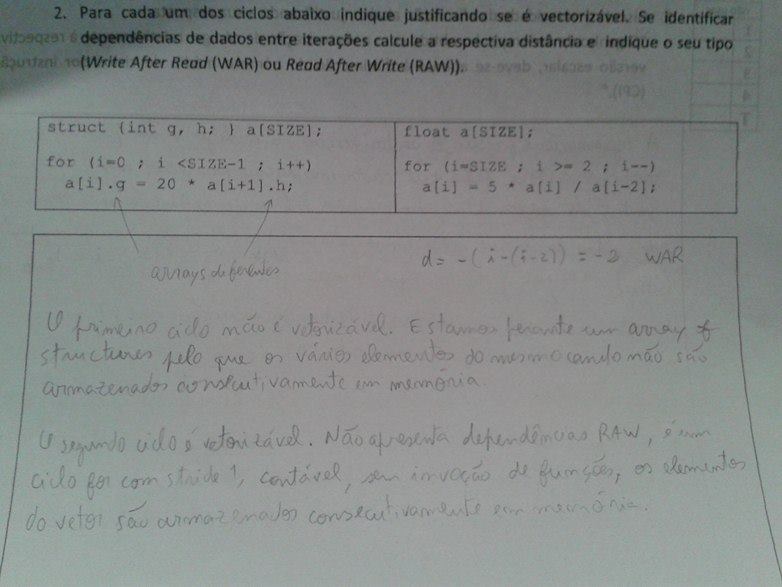 2. Para cada um dos ciclos abaixo indique justificando se é vectorizável. Se identificar
dependências de dados entre iterações calcule a respectiva distância e indique o seu tipo
(Write After Read (WAR) ou Read After Write (RAW)).
struct {int g, h; } a[SIZE];
for (i=0 ; i <SIZE-1 ; i++)
a[i].g = 20 * a[i+1].h;
float a[SIZE];
for (i=SIZE ; i >= 2 ; i--)
a[i] = 5 * a[i] / a[i-2];
arrays diferentes
d = -(i-(i-2)) = -2 WAR
O primeiro ciclo não é vetorizável. Estamos perante um array of
structures pelo que os vários elementos do mesmo não são
armazenados consecutivamente em memória.
O segundo ciclo é vetorizável. Não apresenta dependências RAW, é um
ciclo for com stride 1, contável, sem invocação de funções, os elementos
do vetor são armazenados consecutivamente em memória.